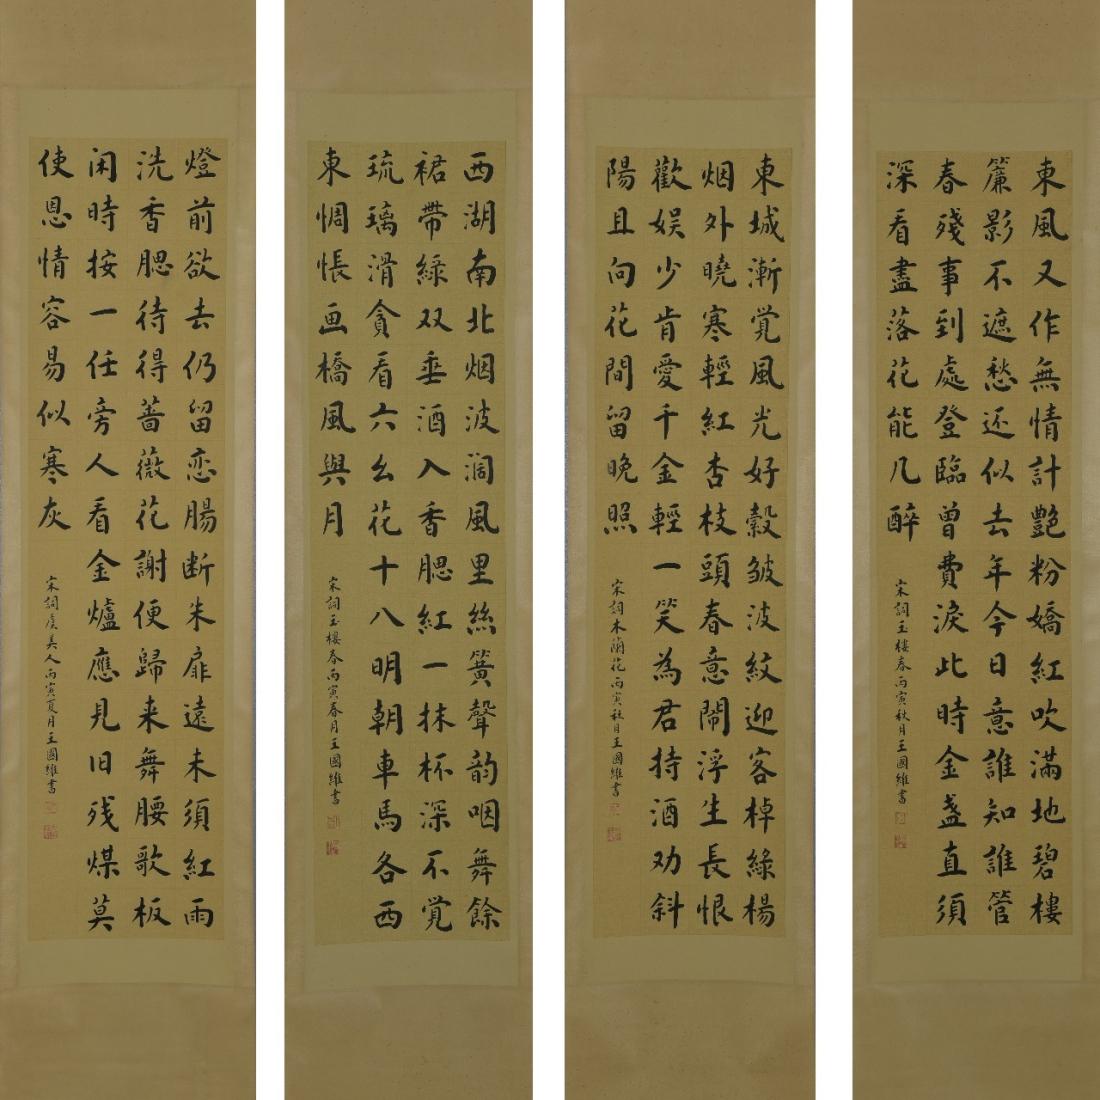 東風又作無情計艷粉嬌紅吹滿地碧樓
簾影不遮愁还似去年今日意誰知誰管
春殘事到處登臨曾費淚此時金盏直須
深看盡落花能几醉
宋詞玉樓春丙寅秋月王國維書
東城漸覚風光好縠皱波紋迎客棹綠楊
烟外曉寒輕紅杏枝頭春意閙浮生長恨
歡娱少肯愛千金輕一笑為君持酒劝斜
陽且向花間留晚照
宋詞木蘭花丙寅秋月王國維書
西湖南北烟波阔風里絲簧聲韵咽舞餘
裙帶綠双垂酒入香腮紅一抹杯深不覚
琉璃滑貪看六幺花十八明朝車馬各西
東惆悵画橋風與月
宋詞玉樓春丙寅春月王國維書
燈前欲去仍留恋腸断朱扉遠未須紅雨
洗香腮待得蔷薇花謝便歸来舞腰歌板
闲時按一任旁人看金爐應見旧残煤莫
使恩情容易似寒灰
宋詞虞美人丙寅夏月王國維書